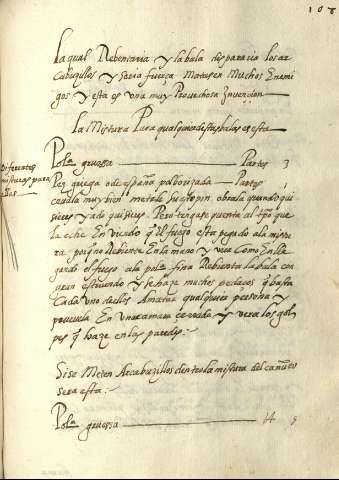 108
La qual Rebentaria y la bala dispararia los ar
Cabuzillos y seria fuerça Matasen Muchos Enemi
gos y esta es una muy Provechosa Invencion
La Mistura Para qualquiera destas balas es esta
Diferentes
misturas para
Polª. gruessa Partes 3
Pez griega o de españa polborizada Partes 1
muy bien metele su
y a do quisieres Pero tengase quenta al tpo que
la eche En viendo q̃ El fuego esta pegado a la mistu
ra porq̃ no Rebiente En la mano y vera Como En lle
gando el fuego a la polª. fina Rebienta la bala con
gran estruendo y se haze muchos pedaços q̃ basta
Cada uno dellos Amatar qualquiera persona y
En una camara cerrada y vera los gol
pes q̃ haze en las paredes.
Si se Meten Arcabuzillos dentro la mistura del cañuto
sera esta.
Polª. gruessa 14 9